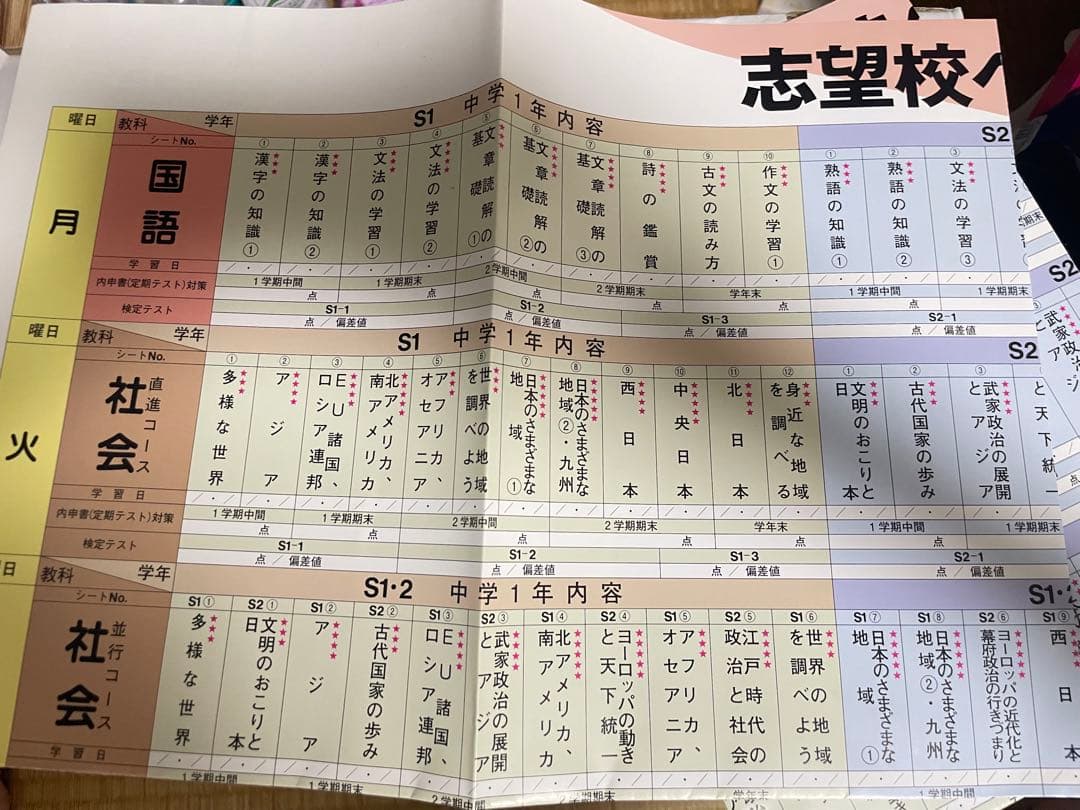 志望校へ
曜日 教科 学年 S1 中学1年内容 S2
シートNo.
月
国語
① 漢字の知識① ★★★
② 漢字の知識② ★★★
③ 文法の学習① ★★★
④ 文法の学習② ★★★★
⑤ 文章読解の基礎① ★★★
⑥ 文章読解の基礎② ★★★★
⑦ 文章読解の基礎③ ★★★★
⑧ 詩の鑑賞 ★★★★
⑨ 古文の読み方 ★★★
⑩ 作文の学習① ★★★
① 熟語の知識① ★★★★
② 熟語の知識② ★★★★
③ 文法の学習③ ★★★
学習日
内申書(定期テスト)対策 1学期中間 点 1学期期末 点 2学期中間 点 2学期期末 点 学年末 点 1学期中間 点 1学期期末
検定テスト S1-1 点/偏差値 S1-2 点/偏差値 S1-3 点/偏差値 S2-1
曜日 教科 学年 S1 中学1年内容 S2
シートNo.
火
社会 直進コース
① 多様な世界
② アジア
③ EU諸国、ロシア連邦
④ 北アメリカ、南アメリカ
⑤ アフリカ、オセアニア
⑥ 世界の地域を調べよう
⑦ 日本のさまざまな地域①
⑧ 日本のさまざまな地域②・九州
⑨ 西日本
⑩ 中央日本
⑪ 北日本
⑫ 身近な地域を調べる
① 文明のおこりと日本
② 古代国家の歩み
③ 武家政治の展開とアジア
と天下統一
学習日
内申書(定期テスト)対策 1学期中間 点 1学期期末 点 2学期中間 点 2学期期末 点 学年末 点 1学期中間 点 1学期期末
検定テスト S1-1 点/偏差値 S1-2 点/偏差値 S1-3 点/偏差値 S2-1 点/偏差値
曜日 教科 学年 S1・2 中学1年内容 S1・2
シートNo.
社会 並行コース
S1① 多様な世界
S2① 文明のおこりと日本
S1② アジア
S2② 古代国家の歩み
S1③ EU諸国、ロシア連邦
S2③ 武家政治の展開とアジア
S1④ 北アメリカ、南アメリカ
S2④ ヨーロッパの動きと天下統一
S1⑤ アフリカ、オセアニア
S2⑤ 江戸時代の政治と社会
S1⑥ 世界の地域を調べよう
S1⑦ 日本のさまざまな地域①
S1⑧ 日本のさまざまな地域②・九州
S2⑥ ヨーロッパの近代化と幕府政治の行きづまり
S1⑨ 西日本
学習日
1学期中間 1学期期末 2学期中間 2学期期末 学年末 1学期中間
S2
武家政治
とア